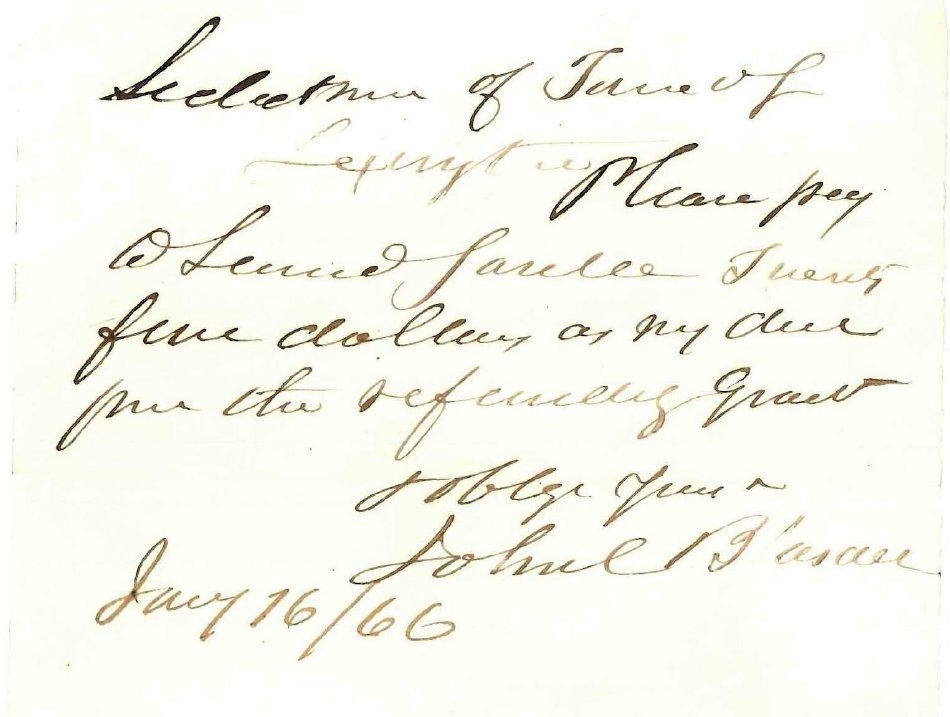 Selectmen of Town of
Lexington
Please pay
to Leonard Twenty
five dollars as my due
from the refunding Grant
& oblge Yours
John
Jany 16/66